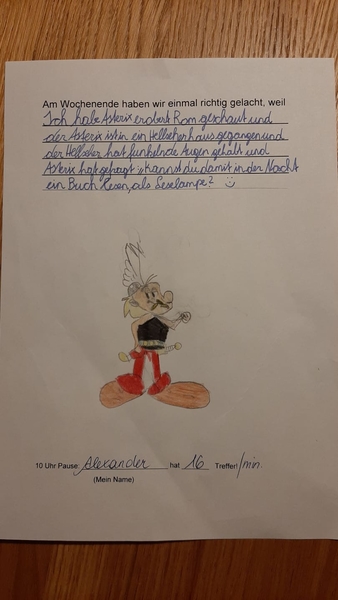 Am Wochenende haben wir einmal richtig gelacht, weil
Ich habe Asterix erobert Rom geschaut und
der Asterix ist in ein Hellseherhaus gegangen und
der Hellseher hat funkelnde Augen gehabt und
Asterix hat gefragt "kannst du damit in der Nacht
ein Buch lesen, als Leselampe? ☺
10 Uhr Pause: Alexander hat 16 Treffer! /min.
(Mein Name)